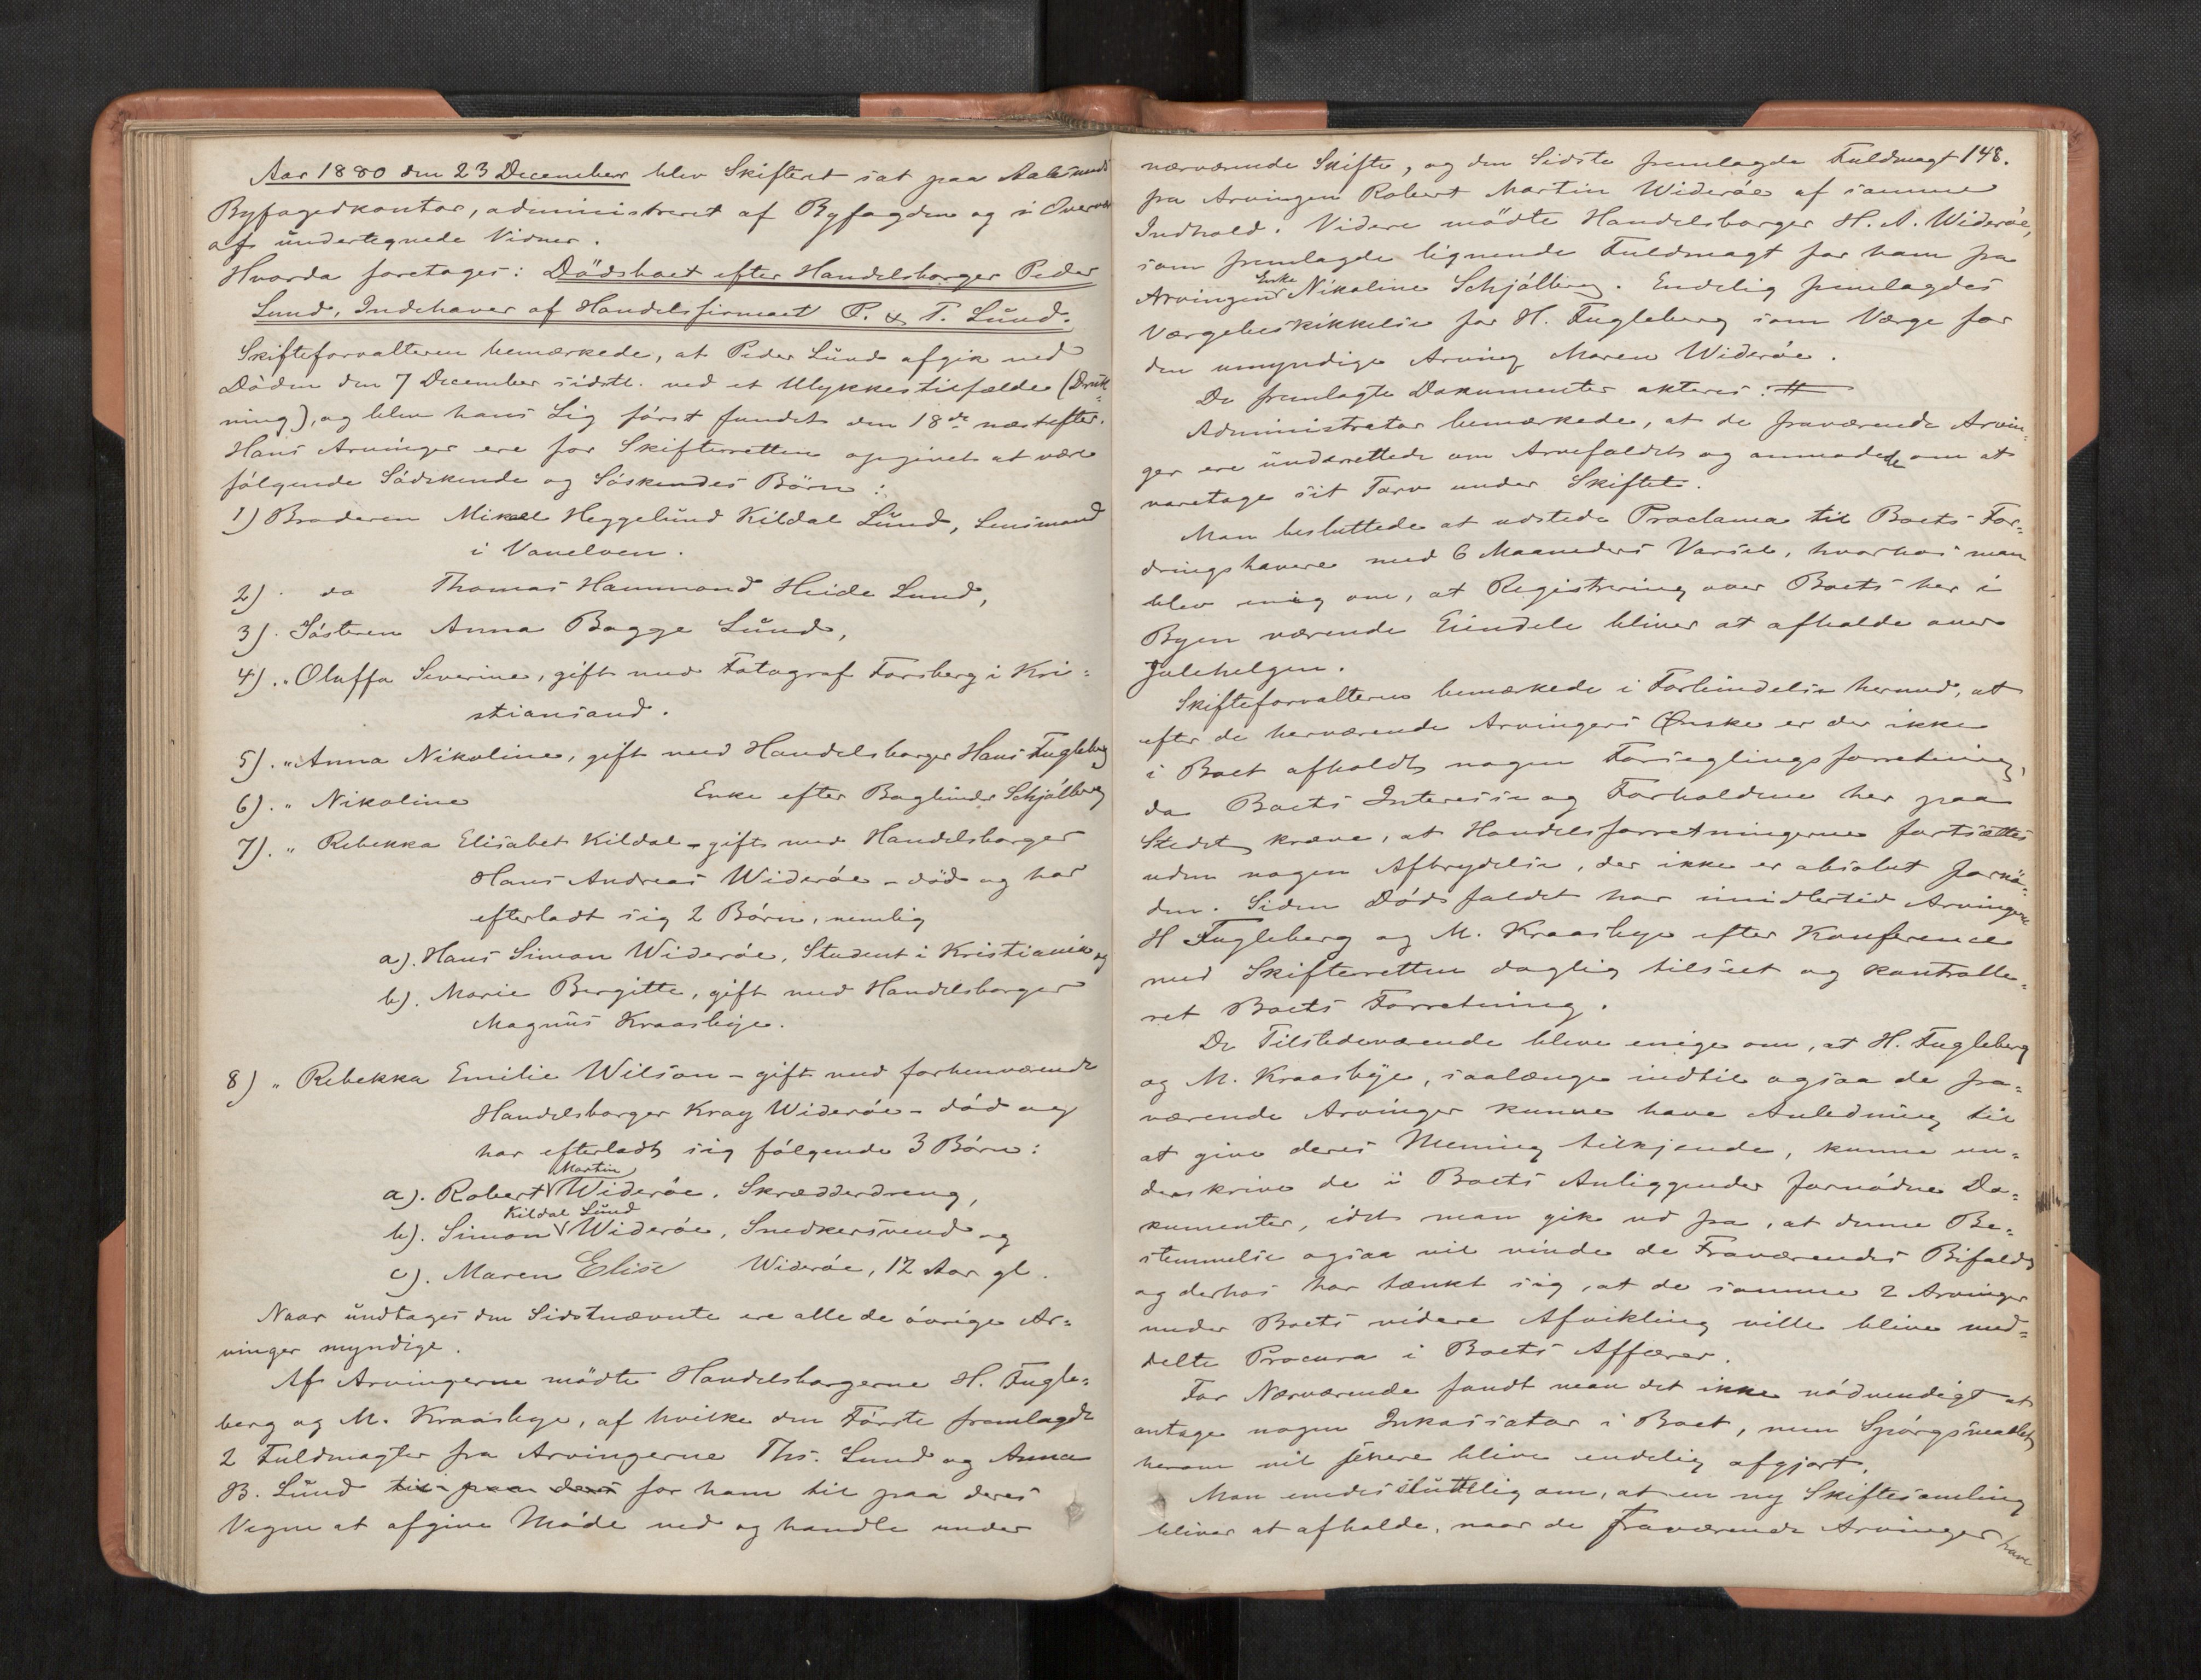 Aar 1880 den 23 December blev Skifteret sat paa Aalesunds
Byfogedkontor, administreret af Byfogden og i Overvær
af undertegnede Vidner.
Hvorda foretages: Dödsboet efter Handelsborger Peder
Lund, Indehaver af Handelsfirmaet P. & T. Lund.
Skifteforvalteren bemærkede, at Peder Lund afgik ved
Döden den 7 December sidstl. ved et Ulykkestilfælde (Drukt-
ning), og blev hans Lig först fundet den 18de næstefter.
Hans Arvinger ere for Skifteretten opgivet at være
følgende Södskende og Söskendes Börn:
1) Broderen Mikael Heggelund Kildal Lund, Lensmand
i Vanelven.
2) . do Thomas Hammond Heide Lund,
3) . Söstren Anna Bagge Lund,
4) . " Oluffa Severine, gift med Fotograf Forsberg i Kri-
stiansand.
5) . " Anna Nikoline, gift med Handelsborger Hans Fugleberg
6) . " Nikoline Enke efter Bogbinder Schjölberg
7) . " Rebekka Elisabet Kildal - gift med Handelsborger
Hans Andreas Wideröe - död og har
efterladt sig 2 Börn, nemlig
a). Hans Simon Wideröe, Student i Kristiania og
b). Marie Bergitte, gift med Handelsborger
Magnus Kraasbye.
8) " Rebekka Emilie Wilson - gift med forhenværende
Handelsborger Krag Wideröe - död og
har efterladt sig følgende 3 Börn:
Martin
a). Robert Wideröe, Skrædderdreng,
Kildal Lund
b). Simon Wideröe, Snedkersvend og
c). Maren Elise Wideröe, 12 Aar gl.
Naar undtages den Sidstnævnte ere alle de övrige Ar-
vinger myndige.
Af Arvingerne mödte Handelsborgerne H. Fugle-
berg og M. Kraasbye, af hvilke den Förste fremlagde
2 Fuldmagter fra Arvingerne Ths. Lund og Anna
B. Lund til paa deres for ham til paa deres
Vegne at afgive Möde ved og handle under
nærværende Skifte, og den Sidste fremlagde Fuldmagt 148.
fra Arvingen Robert Martin Wideröe af samme
Indhold. Videre mödte Handelsborger H. A. Wideröe,
som fremlagde lignende Fuldmagt for ham fra
Enke
Arvingen Nikoline Schjölberg. Endelig fremlagdes
Værgebeskikkelse for H. Fugleberg som Værge for
den umyndige Arving Maren Wideröe.
De fremlagte Dokumenter akteres: #
Administrator bemærkede, at de fraværende Arvin-
ger ere underrettede om Arvefaldet og anmodede om at
varetage sit Tarv under Skiftet.
Man besluttede at udstede Proclama til Boets For-
dringshavere med 6 Maaneders Varsel, hvorhos man
blev enig om, at Registrering over Boets her i
Byen værende Eiendele bliver at afholde over
Julehelgen.
Skifteforvalteren bemærkede i Forbindelse hermed, at
efter de herværende Arvingers Ønske er der ikke
i Boet afholdt nogen Forseglingsforretning,
da Boets Interesse og Forholdene her paa
Stedet kræve, at Handelsforretningerne fortsættes
uden nogen Afbrydelse, der ikke er absolut fornö-
den. Siden Dödsfaldet har imidlertid Arvingerne
H Fugleberg og M. Kraasbye efter Konference
med Skifteretten daglig tilseet og kontrolle-
ret Boets Forretning.
De Tilstedeværende bleve enige om, at H. Fugleberg
og M. Kraasbye, saalænge indtil ogsaa de fra-
værende Arvinger kunne have Anledning til
at give deres Mening tilkjende, kunne un-
derskrive de i Boets Anliggender fornödne Do-
kumenter, idet man gik ud fra, at denne Be-
stemmelse ogsaa vil vinde de Fraværendes Bifald,
og derhos har tænkt sig, at de samme 2 Arvinger
under Boets videre Afvikling ville blive med-
delte Procura i Boets Affærer.
For Nærværende fandt man det ikke nödvendigt at
antage nogen Inkassator i Boet, men Spörgsmaalet
herom vil senere blive endelig afgjort.
Man enedes sluttelig om, at en ny Skiftesamling
bliver at afholde, naar de fraværende Arvinger have